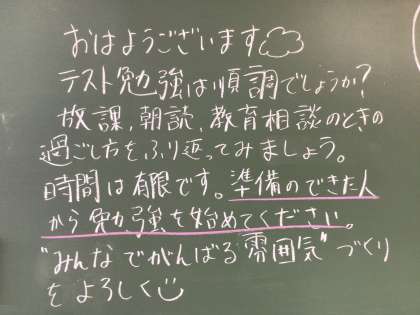 おはようございます
テスト勉強は順調でしょうか?
放課、朝読、教育相談のときの
過ごし方をふり返ってみましょう。
時間は有限です。準備のできた人
から勉強を始めてください。
"みんなでがんばる雰囲気"づくり
をよろしく